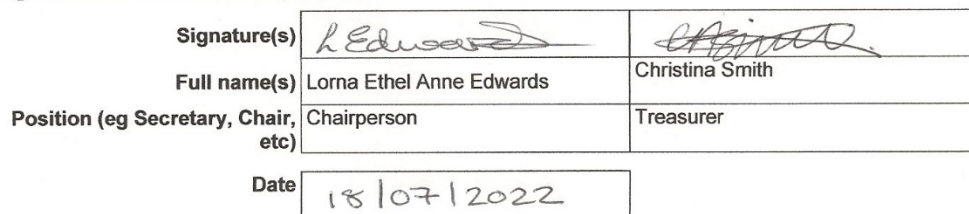 Signature(s) L Edwards
Full name(s) Lorna Ethel Anne Edwards Christina Smith
Position (eg Secretary, Chair, etc) Chairperson Treasurer
Date 18/07/2022